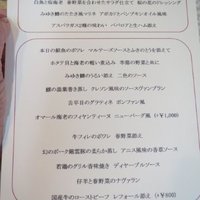 白魚と塩海老 春野菜を合わせたサラダ仕立て 桜の花のドレッシング
みゆき鱒のたたき風マリネ アボカドとパンプキンオイル風味
アスパラガス2種の味わい ババロアと生ハム添え
本日の鮮魚のポワレ マルテーズソースとふきのとうを添えて
ホタテ貝と海老の軽い煮込み 季節の野菜と共に
みゆき鱒のうるい添え 二色のソース
鱒の温薬香蒸し クレソン風味のヴァンブランソース
舌平目のグラティネ ボンファム風
オマール海老のフィヤンティーヌ ニューバーグ風 (+¥1,000)
牛フィレのポワレ 春野菜添え
幻のポーク鹿雲豚の柔らか蒸し アニス風味の香草ソース
若鶏のグリル香味焼き ディヤーブルソース
仔羊と春野菜のナヴァラン
国産牛のローストビーフ レフォール添え (+¥800)